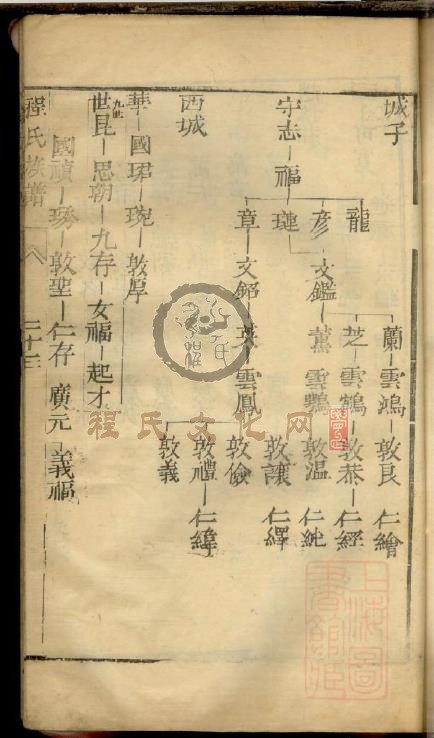 城子
蘭 雲鴻 敦良 仁繪
龍 芝 雲鶴 敦恭 仁經
彥 文鑑 薰 雲鸚 敦温 仁純
守志 福 璉 敦讓 仁繹
章 文銘 英 雲鳳 敦儉
敦禮 仁緯
西城 敦義
華 國珺 琬 敦厚
九世
世昆 思朝 九存 女福 起才
國禎 琇 敦聖 仁存 廣元 義福
程氏族譜 八 二十三
程氏文化网
上海圖書館